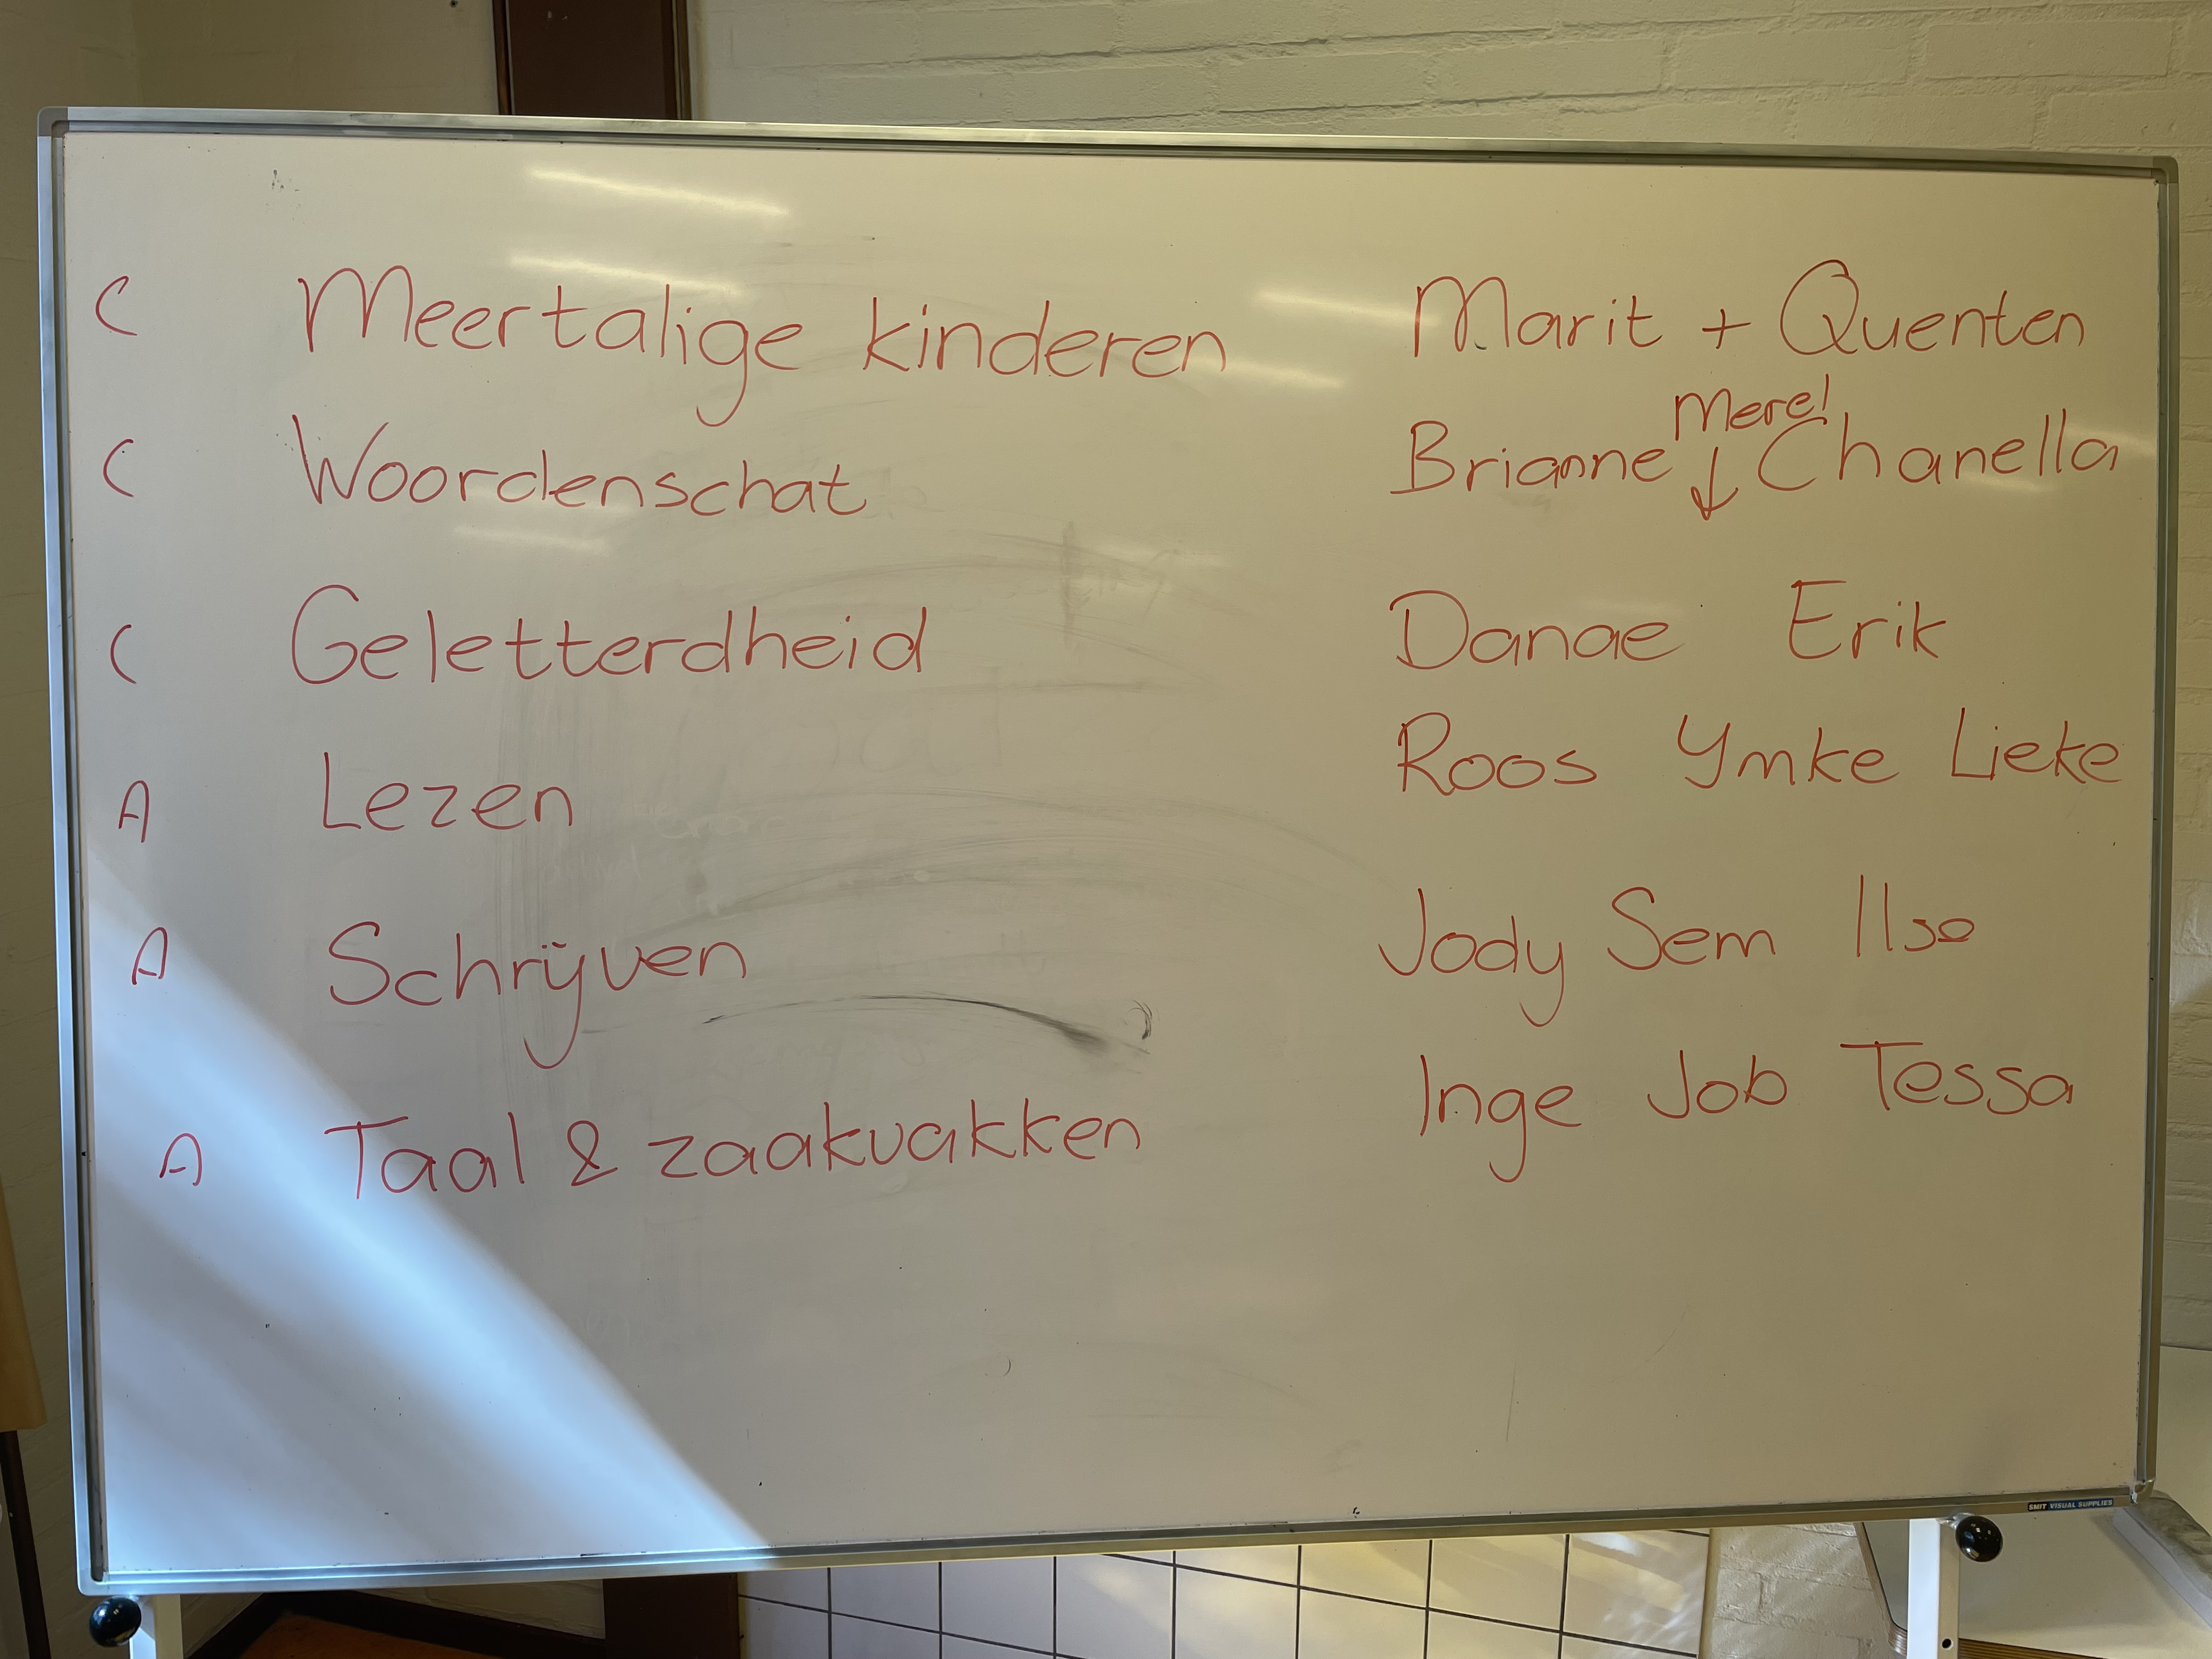 C Meertalige kinderen Marit + Quenten
Merel
C Woordenschat Brianne ↓ Chanella
C Geletterdheid Danae Erik
A Lezen Roos Ymke Lieke
A Schrijven Jody Sem Ilse
A Taal & zaakvakken Inge Job Tessa
SMIT VISUAL SUPPLIES